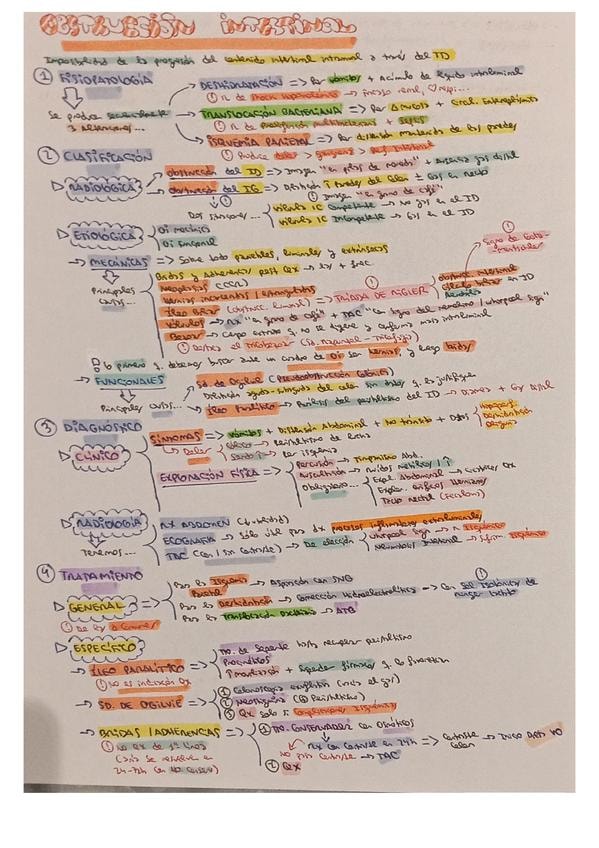 OBSTRUCCIÓN INTESTINAL
Imposibilidad de la progresión del contenido intestinal intraluminal a través del ID
① FISIOPATOLOGÍA
DESHIDRATACIÓN => Por vómitos + Acúmulo de líquido intraluminal
① R. de shock hipovolémico → fracaso renal,
Se produce
3 Alteraciones...
TRANSLOCACIÓN BACTERIANA => Por
① R. de + sepsis
ISQUEMIA PARIETAL => Por distensión mantenida de las paredes
① Produce dolor > gangrena > Perf. intestinal
② CLASIFICACIÓN
RADIOLÓGICA
Obstrucción del ID => Imagen "en pilas de monedas" + Ausencia gas distal
Obstrucción del IG => Distensión del Colon ± Gas en recto
① Imagen "en grano de café"
Dos situaciones...
Válvula IC Competente → No gas en el ID
Válvula IC Incompetente → Gas en el ID
ETIOLÓGICA
OI mecánica
OI funcional
→ MECÁNICAS => Sobre todo parietales, luminales y extrínsecas
Principales causas...
Bridas y Adherencias post Qx → 1ª + frec.
Neoplasias (CCR)
Hernias incarceradas / estranguladas
Íleo Biliar (obstrucc. luminal) => TRÍADA DE RIGLER
Obstrucc. intestinal
Cálculo biliar en ID
Aerobilia
Vólvulos → Rx "en grano de café" + TAC "con signo del remolino / whirlpool sign"
Bezoar → Cuerpo extraño q. no se digiere y conforma masa intraluminal
① Destaca el Tricobezoar
Lo primero q. debemos buscar ante un cuadro de OI son hernias, y luego bridas
→ FUNCIONALES
Principales causas...
Sd. de Ogilvie (Pseudoobstrucción Colónica)
Distensión aguda-subaguda del colon sin causa q. lo justifique
Íleo Paralítico → Parálisis del peristaltismo del ID → Diarrea + Gas distal
③ DIAGNÓSTICO
CLÍNICO
SÍNTOMAS => Vómitos + Distensión Abdominal + No tránsito + Datos
Hipoperf.
Deshidratación
Oliguria
→ Dolor
Cólico → Peristaltismo de lucha
Continuo → Por isquemia
EXPLORACIÓN FÍSICA =>
Percusión → Timpanismo Abd.
Auscultación → Ruidos metálicos / ↑
Obligatorio...
Expl. Abdominal → Cicatrices Qx
Explor. orificios herniarios
Tacto rectal (Fecaloma)
RADIOLOGÍA
Tenemos...
RX ABDOMEN
ECOGRAFÍA → Sólo útil para dx procesos inflamatorios extraluminales
TAC (con / sin contraste) → De elección
Whirlpool sign → R. Isquemia
Neumatosis Intestinal → Sufrim. isquémico
④ TRATAMIENTO
GENERAL =>
Para la Isquemia Parietal → Aspiración con SNG
Para la Deshidratación → Corrección Hidroelectrolítica → Con Sol. Isotónica de Ringer Lactato
Para la Translocación Bacteriana → ATB
ESPECÍFICO
→ ÍLEO PARALÍTICO =>
① No es indicación Qx
Tto. de Soporte hasta recuperar peristaltismo
Procinéticos
Movilización + Suspender fármacos q. lo favorezcan
→ SD. DE OGILVIE =>
① Colonoscopia evacuatoria
② Neostigmina (⊕ Peristaltismo)
③ Qx Sólo si Complicaciones Isquemia
→ BRIDAS / ADHERENCIAS =>
① No Qx de 1ª línea
(casi se resuelven en 24-72h
① Tto. CONSERVADOR con
Rx con contraste en 24h => Contraste Colon → Inicio Dieta VO
No pasa contraste → TAC
② QX